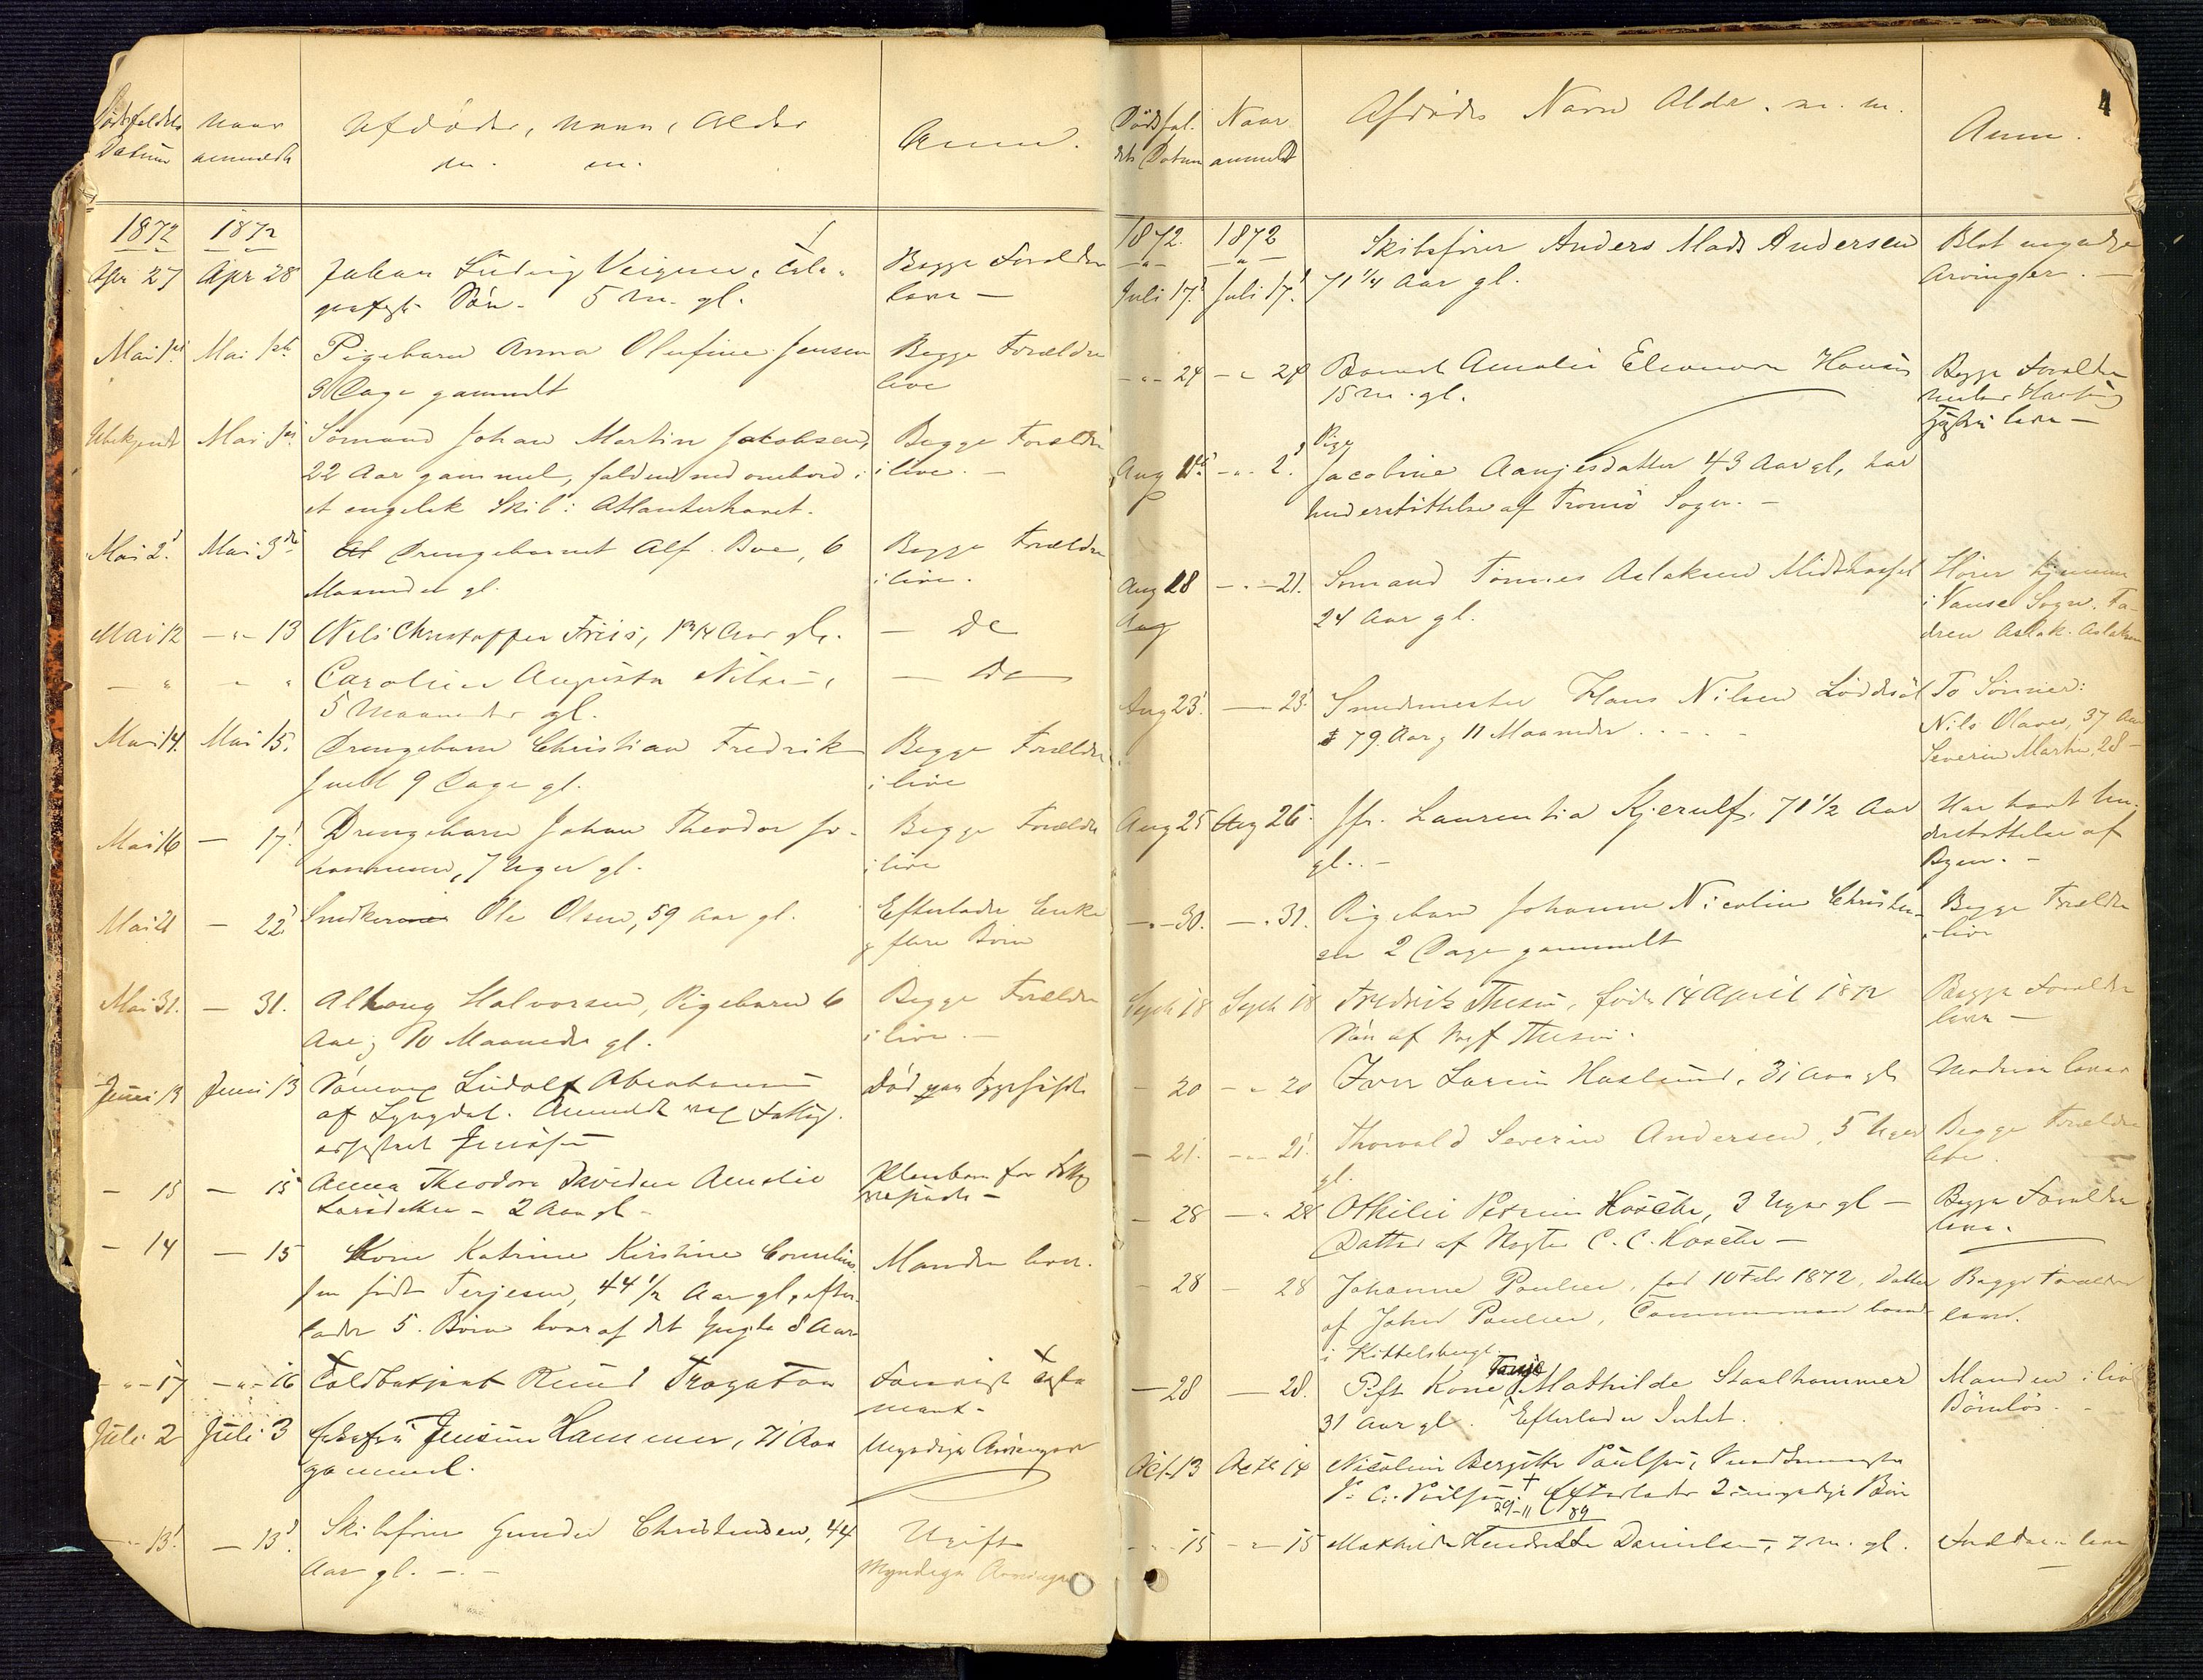 Dødsfaldets Naar Afdødes, Navn, Alder Anm.
Datum anmeldt m. m.
1872 1872
Apr 27 Apr 28 Johan Ludvig Begge Forældre
Søn - 5 m. gl. leve -
Mai 1st Mai 1ste Pigebarn Anna Olufine Jensen Begge Forældre
3 Dage gammelt live
Ubekjendt Mai 1st Sømand Johan Martin Jakobsen, Begge Forældre
22 Aar gammel, falden ned ombord i i live. -
et engelsk Skib i Atlanterhavet.
Mai 2' Mai 3die Drengebarnet Alf Boe, 6 Begge Forældre
Maaneder gl. i live.
Mai 12 - " - 13 Nils Christoffer Friis, 1 3/4 Aar gl. - Do
- " - " Caroline Augusta Nilsen, - Do
5 Maaneder gl.
Mai 14. Mai 15. Drengebarn Christian Fredrik Begge Forældre
Juell 9 Dage gl. i live
Mai 16 - 17' Drengebarn Johan Theodor Jo- Begge Forældre
hannesen, 7 Uger gl. i live
Mai 21 - 22' Snedker Ole Olsen, 59 Aar gl. Efterlader Enke
og flere Børn
Mai 31. - 31. Halvorsen, Pigebarn 6 Begge Forældre
Aar og 10 Maaneder gl. i live. -
Juni 13 Juni 13 Sømand Ludolf Abrahamsen Død paa Sygehuset
af Lyngdal. Anmeldt ved Fattig-

- 15 - 15 Anna Theodora Davidea Amalie Pleiebarn for
Larsdatter - 2 Aar gl -
- 14 - 15 Kone Katrine Kirstine Cornelius- Manden lever.
sen født Terjesen, 44 1/2 Aar gl, efter-
lader 5 Børn hvoraf det yngste 8 Aar
- " - 17 - " - 16 Toldbetjent Knud Tragaton Forrige
Juli 2 Juli 3 Hammer, 71 Aar Myndige Arvinger
gammel.
- " - 13' - 13' Skibsfører Gunder Christensen, 44 Ugift
Aar gl. - . - Myndige Arvinger
4
Dødsfal- Naar Afdødes Navn Alder. m. m. Anm.
dets Datum anmeldt
1872. 1872 Skibsfører Anders Mads Andersen Blot myndige
Juli 17' Juli 17' 71 1/4 Aar gl. Arvinger. -
- " - 24 - " 24 Barnet Amalie Eleonora Hansen Begge Forældre
15 m. gl.
leve -
Pige
Aug 1ste - " - 2' Jacobine Aanjesdatter 43 Aar gl, har
Understøttelse af Tromø Sogn. -
Aug 18 - " - 21. Sømand Tønnes Aslaksen Midthassel Hører hjemme
Aug 24 Aar gl. i Vanse Sogn. Fa-
deren Aslak Aslaksen
Aug 23' - 23' Smedmester Hans Nilsen Løddesøl To Sønner:
79 Aar og 11 Maaneder . - - - Nils Olaves, 37 Aar
Severin Martin, 28 -
Aug 25 Aug 26. Jfr. Laurentia Kjerulf. 71 1/2 Aar Har havt Un-
gl. . - derstøttelse af
Byen. -
- " - 30. - " 31. Pigebarn Johanne Nicoline Christen- Begge Forældre
sen 2 Dage gammelt i live
Septb 18 Septb 18 Fredrik Thesen, født 14 April 1872 Begge Forældre
Søn af Thesen. leve -
- 20 - " 20 Haslund, 31 Aar gl Moderen lever
- 21. - " - 21. Thorvald Severin Andersen, 5 Uger Begge Forældre
gl. leve.
- 28 - " 28 Othilie Petrine Høxcte, 3 Uger gl - Begge Forældre
Datter af C. C. - leve.
- 28 - 28 Johanne Poulsen, fød 10 Febr 1872, Datter Begge Forældre
af Johs Poulsen, boende leve.
i Kittelsbugt
- 28 - 28. Gift Kone Tonje Mathilde Staalhammer Manden i live
31 Aar gl. Efterlader Intet. Børnløs. -
Oct. 13 Octb 14 Nicoline Bergitte Poulsen,
Efterlader 2 umyndige Børn
29-11 89
- " - 15 - " - 15 Mathilde Hendrette Danielsen, 7 m. gl. Forældrene leve